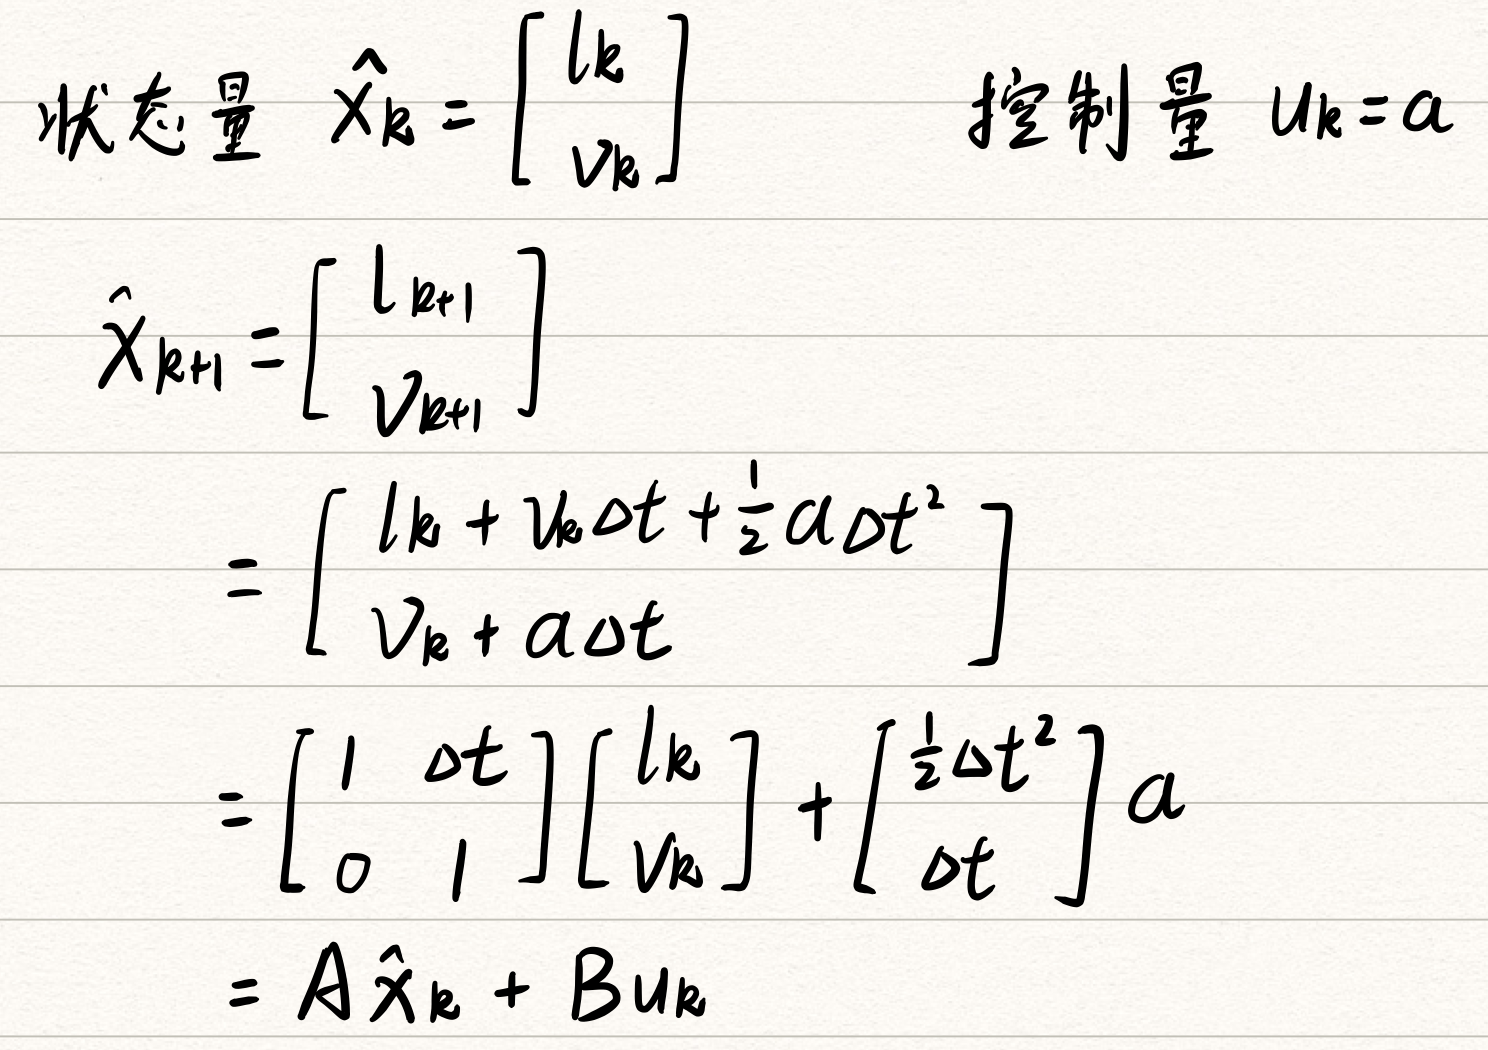 状态量 x̂ₖ = [lₖ; vₖ] 控制量 uₖ = a
x̂ₖ₊₁ = [lₖ₊₁; vₖ₊₁]
= [lₖ + vₖΔt + ½aΔt²; vₖ + aΔt]
= [1 Δt; 0 1][lₖ; vₖ] + [½Δt²; Δt] a
= Ax̂ₖ + Buₖ